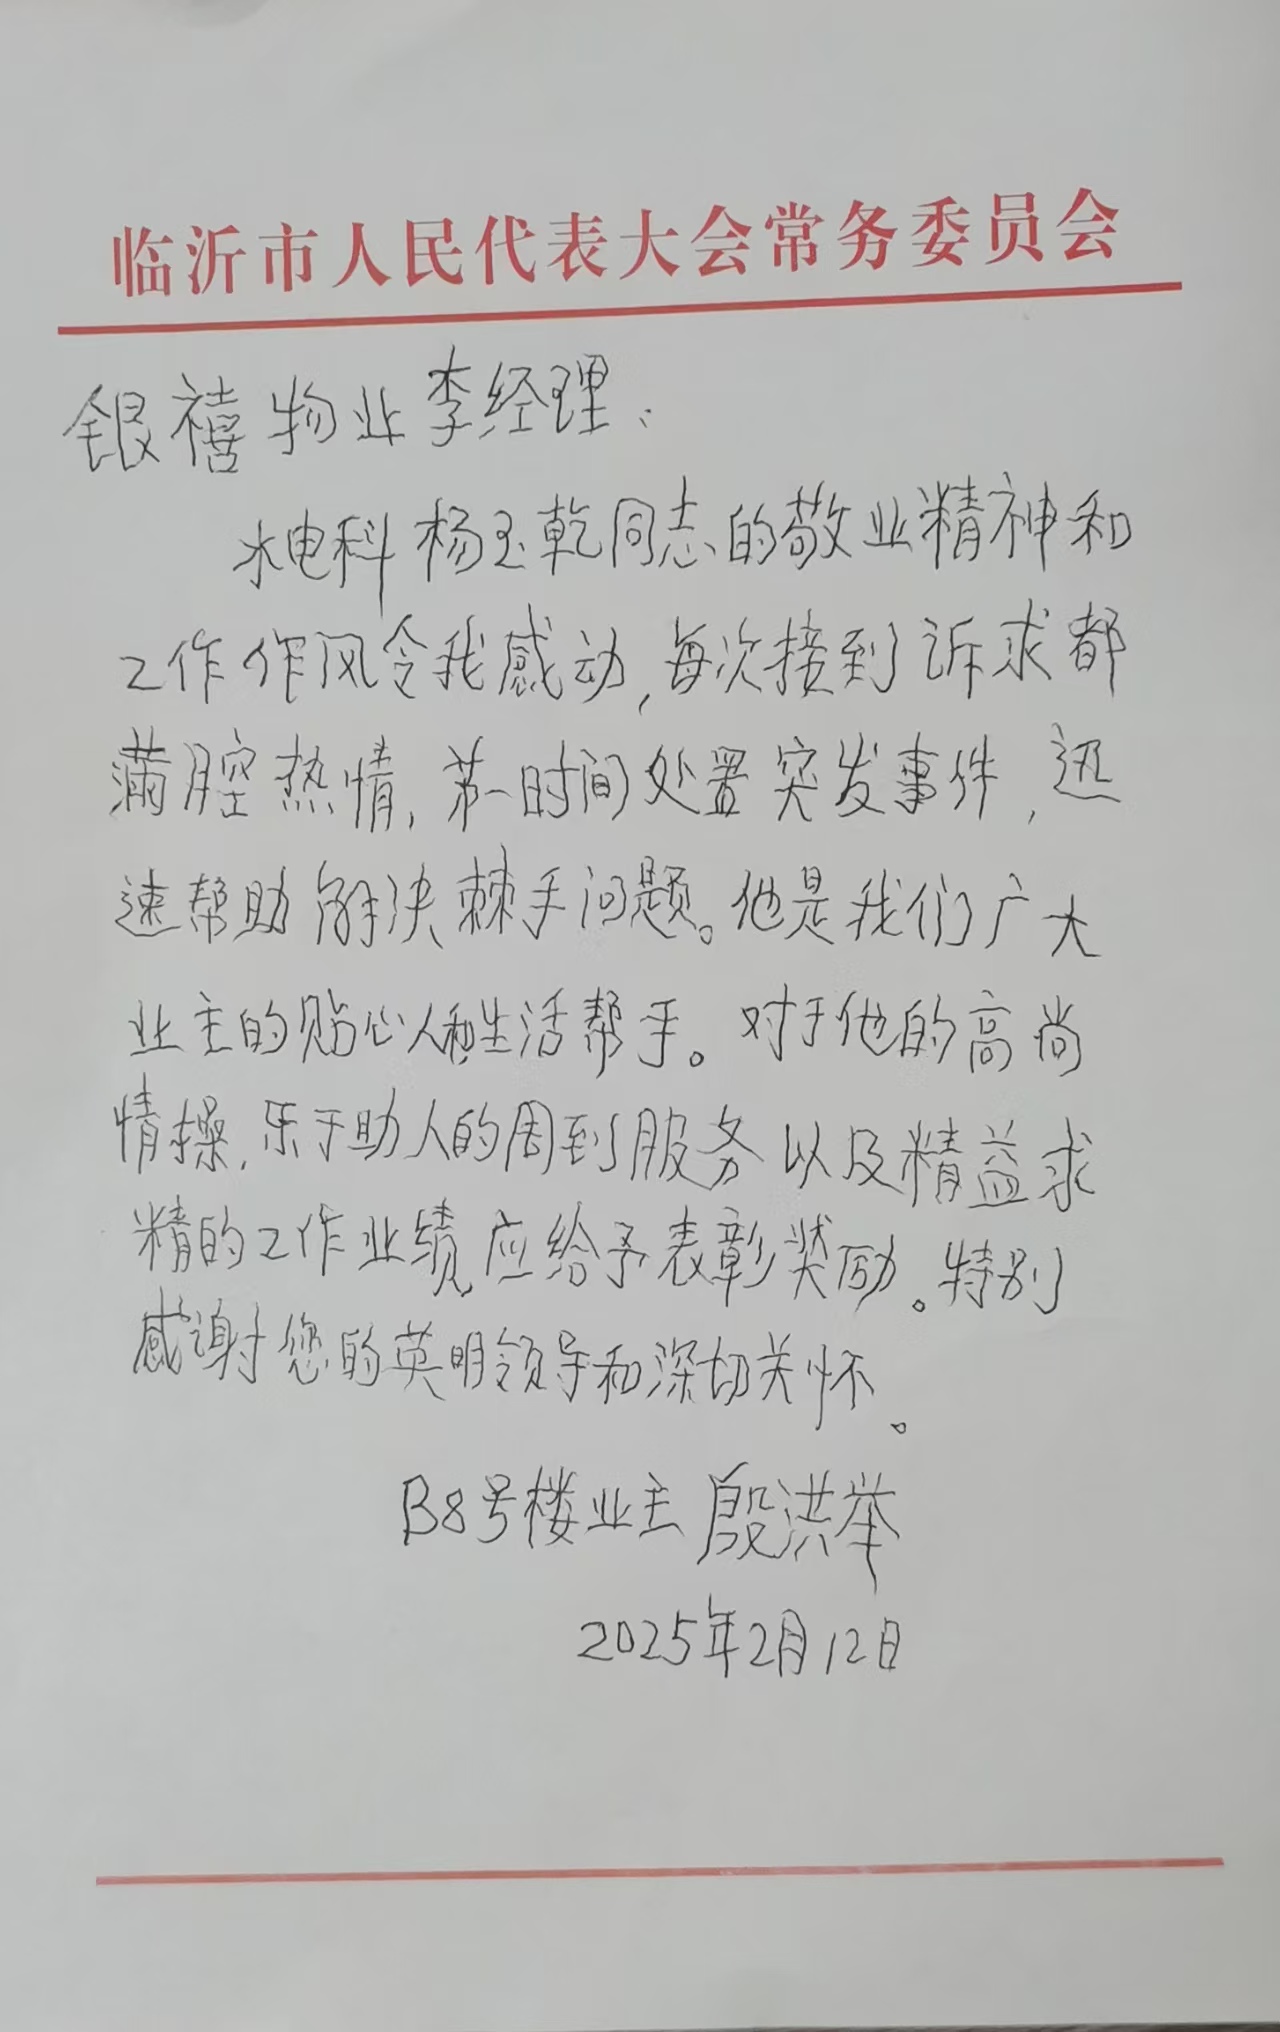 临沂市人民代表大会常务委员会
银禧物业李经理:
水电科杨玉乾同志的敬业精神和
工作作风令我感动,每次接到诉求都
满腔热情,第一时间处置突发事件,迅
速帮助解决棘手问题。他是我们广大
业主的贴心人和生活帮手。对于他的高尚
情操,乐于助人的周到服务以及精益求
精的工作业绩,应给予表彰奖励。特别
感谢您的英明领导和深切关怀。
B8号楼业主殷洪举
2025年2月12日